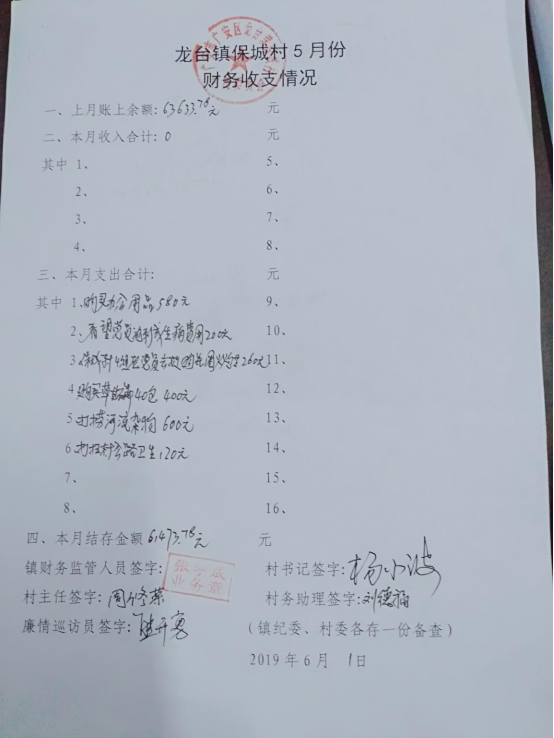 龙台镇保城村5月份
财务收支情况
一、上月账上余额:63633.78元 元
二、本月收入合计:0 元
其中 1、 5、
2、 6、
3、 7、
4、 8、
三、本月支出合计: 元
其中 1、购买办公用品580元 9、
2、看望党员 生病费用200元 10、
3、保城村4组 党员去世购花圈火炮 260元 11、
4、购买 40包 400元 12、
5、打捞河流杂物600元 13、
6、打扫村公路卫生120元 14、
7、 15、
8、 16、
四、本月结存金额61473.78元 元
镇财务监管人员签字: 业务章 村书记签字:杨小波
村主任签字:周 村务助理签字:刘德福
廉情巡访员签字: (镇纪委、村委各存一份备查)
2019年6月 1日